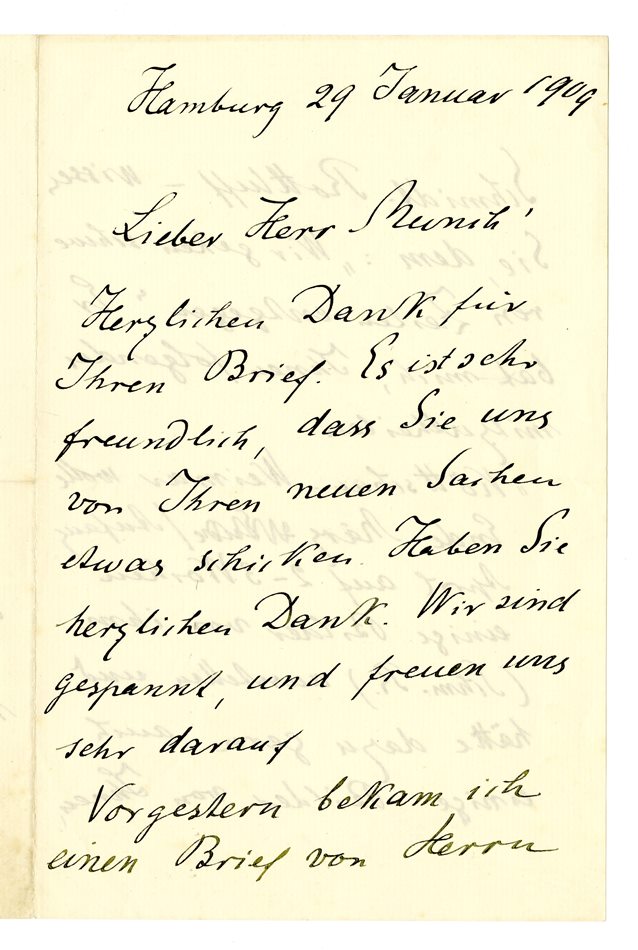 Hamburg 29 Januar 1909
Lieber Herr Munch!
Herzlichen Dank für
Ihren Brief. Es ist sehr
freundlich, dass Sie uns
von Ihren neuen Sachen
etwas schicken. Haben Sie
herzlichen Dank. Wir sind
gespannt, und freuen uns
sehr darauf
Vorgestern bekam ich
einen Brief von Herrn